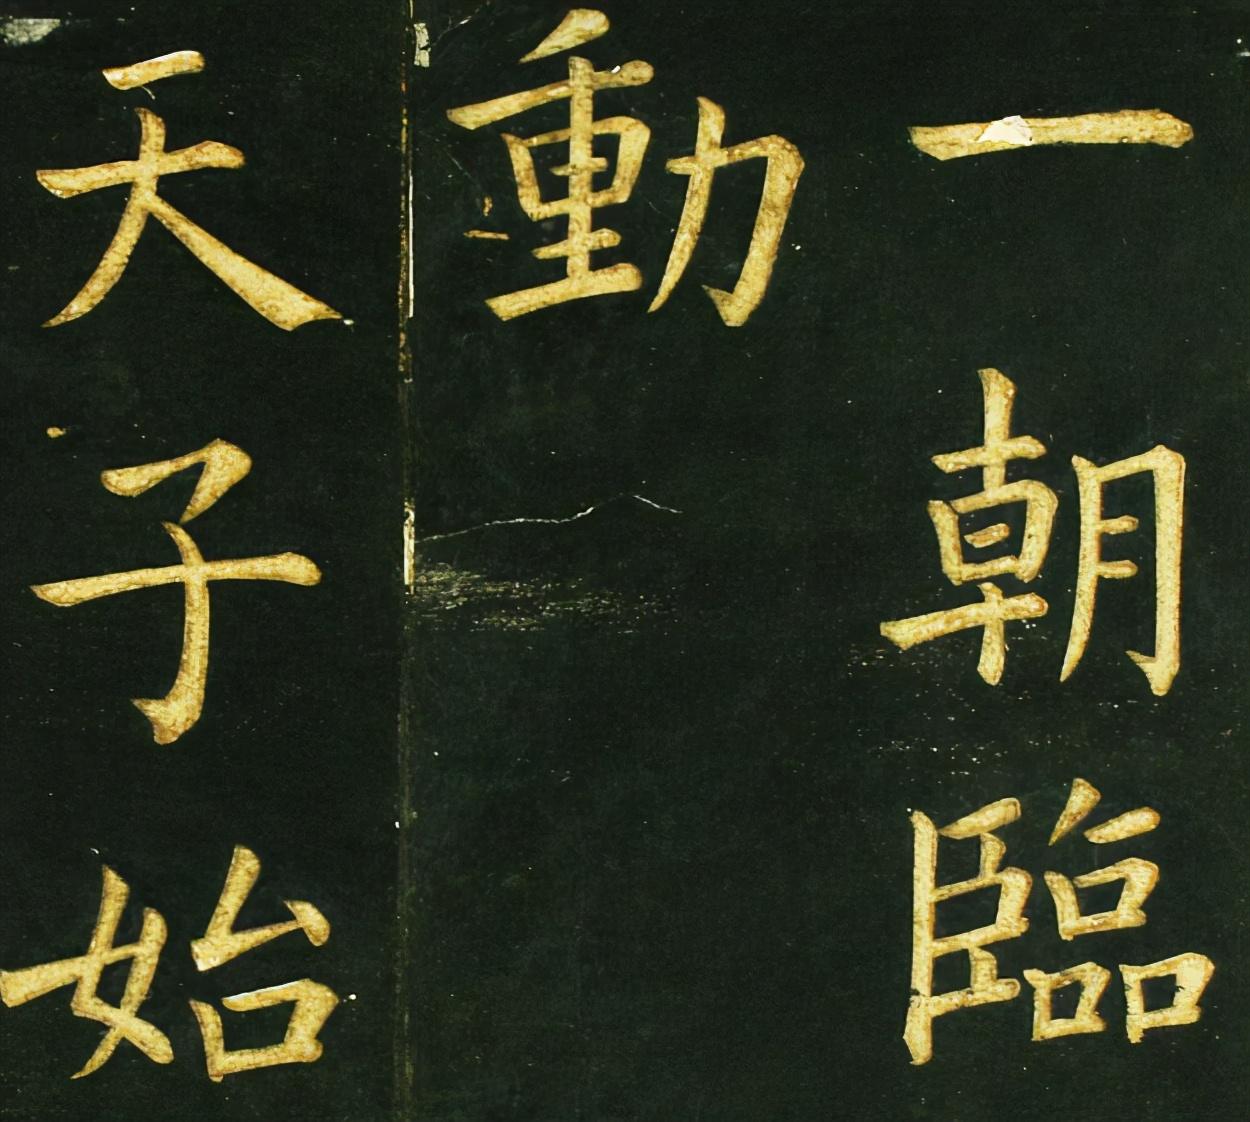 一朝臨
動
天子始